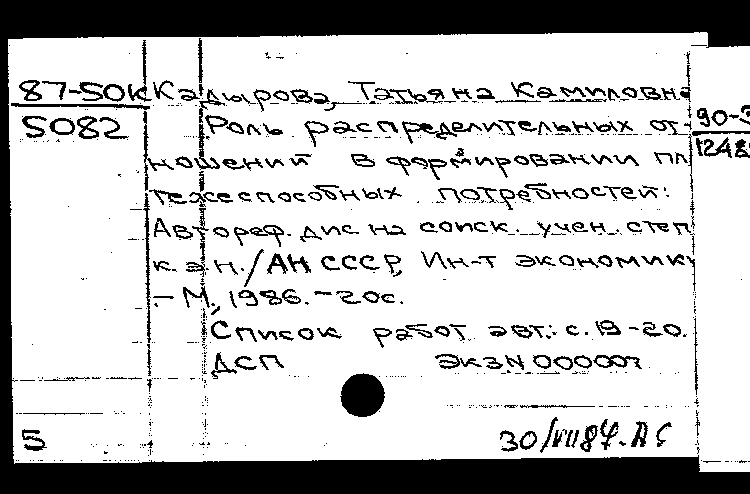 87-50К Кадырова, Татьяна Камиловна
5082 Роль распределительных от-
ношений в формировании пл
тежеспособных потребностей:
Автореф. дис на соиск. учен. степ
к.э.н./АН СССР, Ин-т экономики
– М., 1986. – 20с.
Список работ авт.: с. 19-20.
ДСП Экз N 000007
5 30/VII 87. АС
90-3
1248